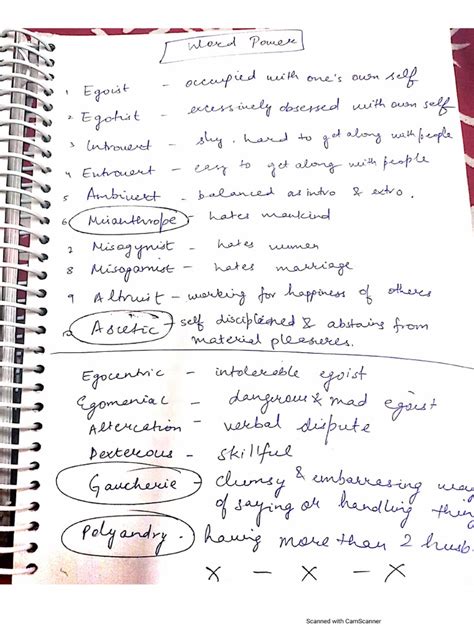 Word Power
1 Egoist - occupied with one's own self
2 Egotist - excessively obsessed with own self
3 Introvert - shy, hard to get along with people
4 Extrovert - easy to get along with people
5 Ambivert - balanced as intro & extro.
6 Misanthrope - hates mankind
7 Misogynist - hates women
8 Misogamist - hates marriage
9 Altruist - working for happiness of others
10 Ascetic - self disciplened & abstains from
material pleasures.
Egocentric - intolerable egoist
Egomaniac - dangerous & mad egoist
Altercation - verbal dispute
Dexterous - skillful
Gaucherie - clumsy & embarrasing way
of saying or handling thin
Polyandry - having more than 2 husb
x - x - x
Scanned with CamScanner